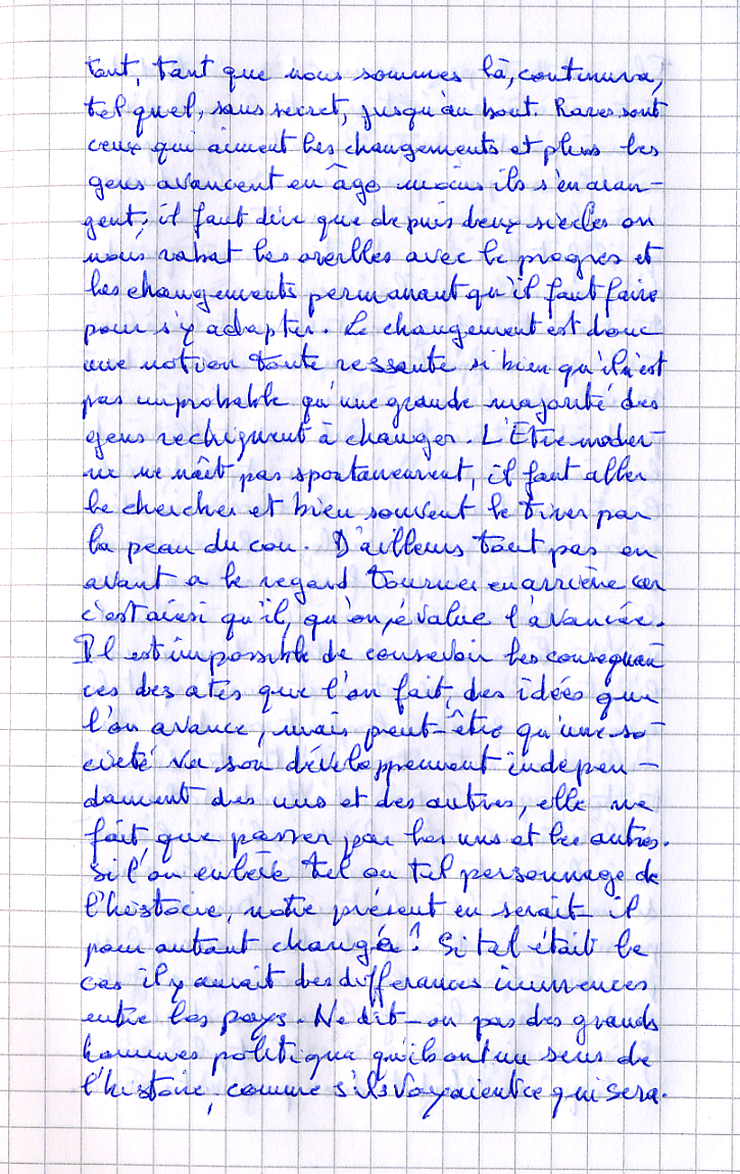 tout, tant que nous sommes là, continura,
tel quel, sans secret, jusqu'au bout. Rares sont
ceux qui aiment les changements et plus les
gens avancent en âge moins ils s'en aran-
gent; il faut dire que depuis deux siecles on
nous rabat les oreilles avec le progres et
les changements permanant qu'il faut faire
pour s'y adapter. Le changement est donc
une notion toute ressente si bien qu'il n'est
pas improbable qu'une grande majorité des
gens rechignent à changer. L'Etre moder-
ne ne naît pas spontanement, il faut aller
le chercher et bien souvent le tirer par
la peau du cou. D'ailleurs tout pas en
avant a le regard tourner en arrière car
c'est ainsi qu'il, qu'on, évalue l'avancée.
Il est impossible de consevoir les consequan
ces des ates que l'on fait, des idées que
l'on avance, mais peut-être qu'une so-
cieté va son développement indepen-
dament des uns et des autres, elle ne
fait que passer par les uns et les autres.
Si l'on enlève tel ou tel personnage de
l'histoire, notre présent en serait-il
pour autant changé? Si tel était le
cas il y aurait des differances immences
entre les pays. Ne dit-on pas des grands
hommes politique qu'ils ont un sens de
l'histoire, comme s'ils voyaient ce qui sera.